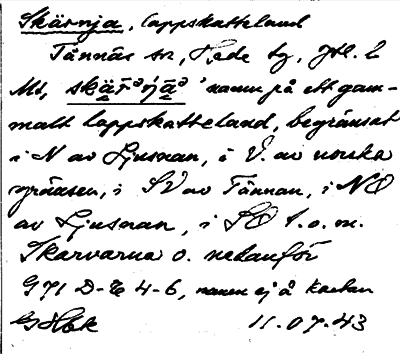 Skärnja, lappskatteland
Tännäs sn, Hede tg, Jtl. l
Ms, skä̀r̄ᵊńā̀ᵊ 'namn på ett gam-
malt lappskatteland, begränsat
i N av Ljusnan, i V. av norska
gränsen, i SV av Tännan, i NO
av Ljusnan, i SO t.o.m.
Skarvarna o. nedanför
G71 D-E 4-6, namn ej å kartan
11.07.43